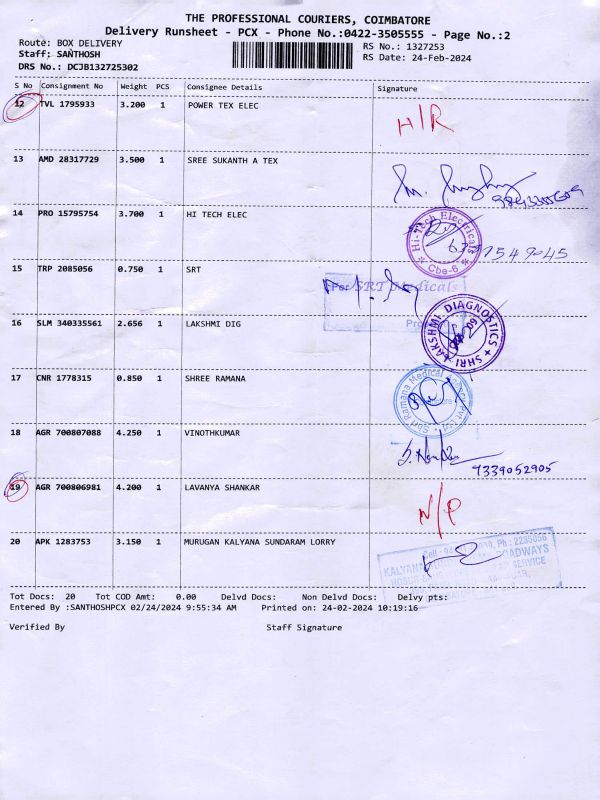 THE PROFESSIONAL COURIERS, COIMBATORE
Delivery Runsheet - PCX - Phone No.:0422-3505555 - Page No.:2
Route: BOX DELIVERY
RS No.: 1327253
Staff: SANTHOSH
RS Date: 24-Feb-2024
DRS No.: DCJB132725302
S No Consignment No Weight PCS Consignee Details Signature
12 TVL 1795933 3.200 1 POWER TEX ELEC
H/R
13 AMD 28317729 3.500 1 SREE SUKANTH A TEX
14 PRO 15795754 3.700 1 HI TECH ELEC
Hi-Tech Electricals
Cbe-6
15 TRP 2085056 0.750 1 SRT
For SRT Medicals
16 SLM 340335561 2.656 1 LAKSHMI DIG
SHRI LAKSHMI DIAGNOSTICS
17 CNR 1778315 0.850 1 SHREE RAMANA
Sri Ramana Medical
18 AGR 700807088 4.250 1 VINOTHKUMAR
9339052905
19 AGR 700806981 4.200 1 LAVANYA SHANKAR
N/P
20 APK 1283753 3.150 1 MURUGAN KALYANA SUNDARAM LORRY
Ph : 2235056
KALYANA
ROADWAYS
SERVICE
Tot Docs: 20 Tot COD Amt: 0.00 Delvd Docs: Non Delvd Docs: Delvy pts:
Entered By :SANTHOSHPCX 02/24/2024 9:55:34 AM Printed on: 24-02-2024 10:19:16
Verified By Staff Signature